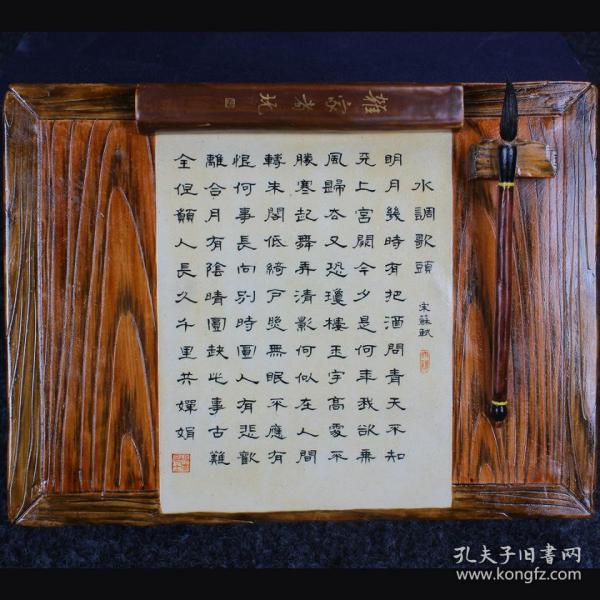 水調歌頭
宋蘇軾
明月幾時有把酒問青天不知
天上宮闕今夕是何年我欲乘
風歸去又恐瓊樓玉宇高處不
勝寒起舞弄清影何似在人間
轉朱閣低綺戶照無眠不應有
恨何事長向別時圓人有悲歡
離合月有陰晴圓缺此事古難
全但願人長久千里共嬋娟
孔夫子旧書网
www.kongfz.com